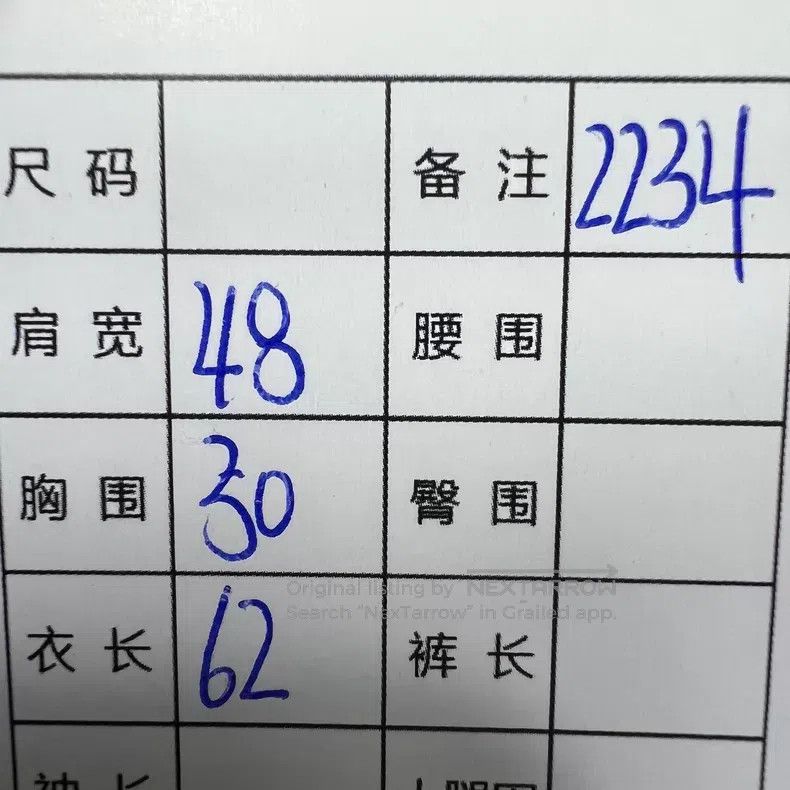 尺码 备注 2234
肩宽 48 腰围
胸围 50 臀围
衣长 62 裤长
Original listing by NEXTARROW
Search "NexTarrow" in Grailed app.